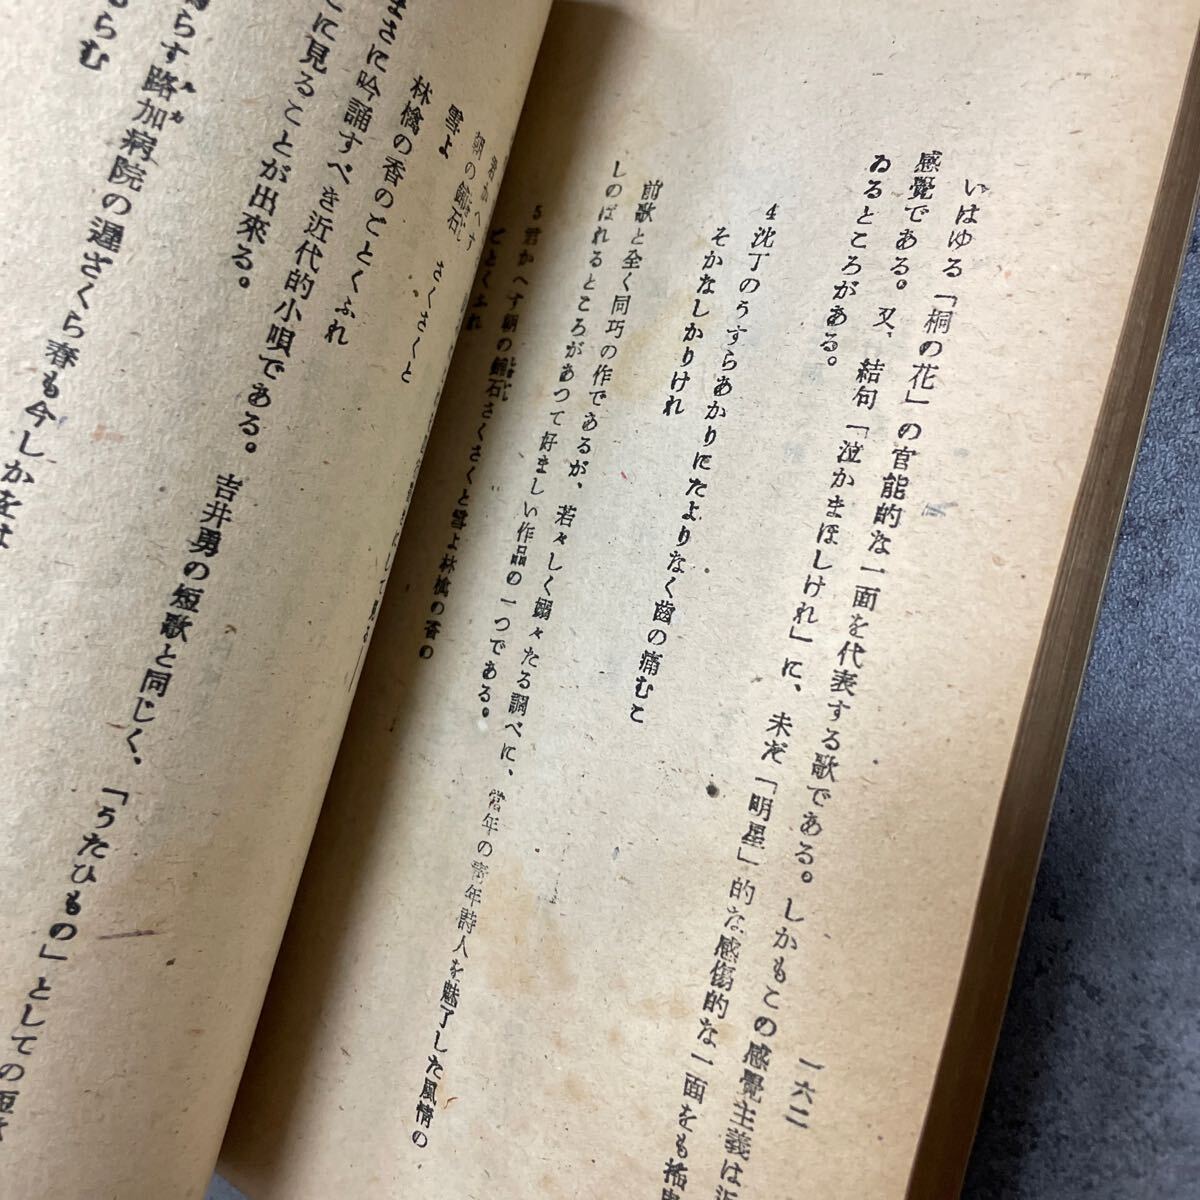 一六二
いはゆる「桐の花」の官能的な一面を代表する歌である。しかもこの感覺主義は
感覺である。又、結句「泣かまほしけれ」に、未だ「明星」的な感傷的な一面をも
ゐるところがある。
4 沈丁のうすらあかりにたよりなく齒の痛むこ
そかなしかりけれ
前歌と全く同巧の作であるが、若々しく嫋々たる調べに、當年の靑年詩人を魅了した風情の
しのばれるところがあつて好ましい作品の一つである。
5 君かへす朝の舗石さくさくと雪よ林檎の香の
ごとくふれ
君かへす
朝の舗石
さくさくと
雪よ
林檎の香のごとくふれ
まさに吟誦すべき近代的小唄である。吉井勇の短歌と同じく、「うたひもの」としての短
に見ることが出來る。
らす路加病院の遲ざくら春も今しかをは
るらむ